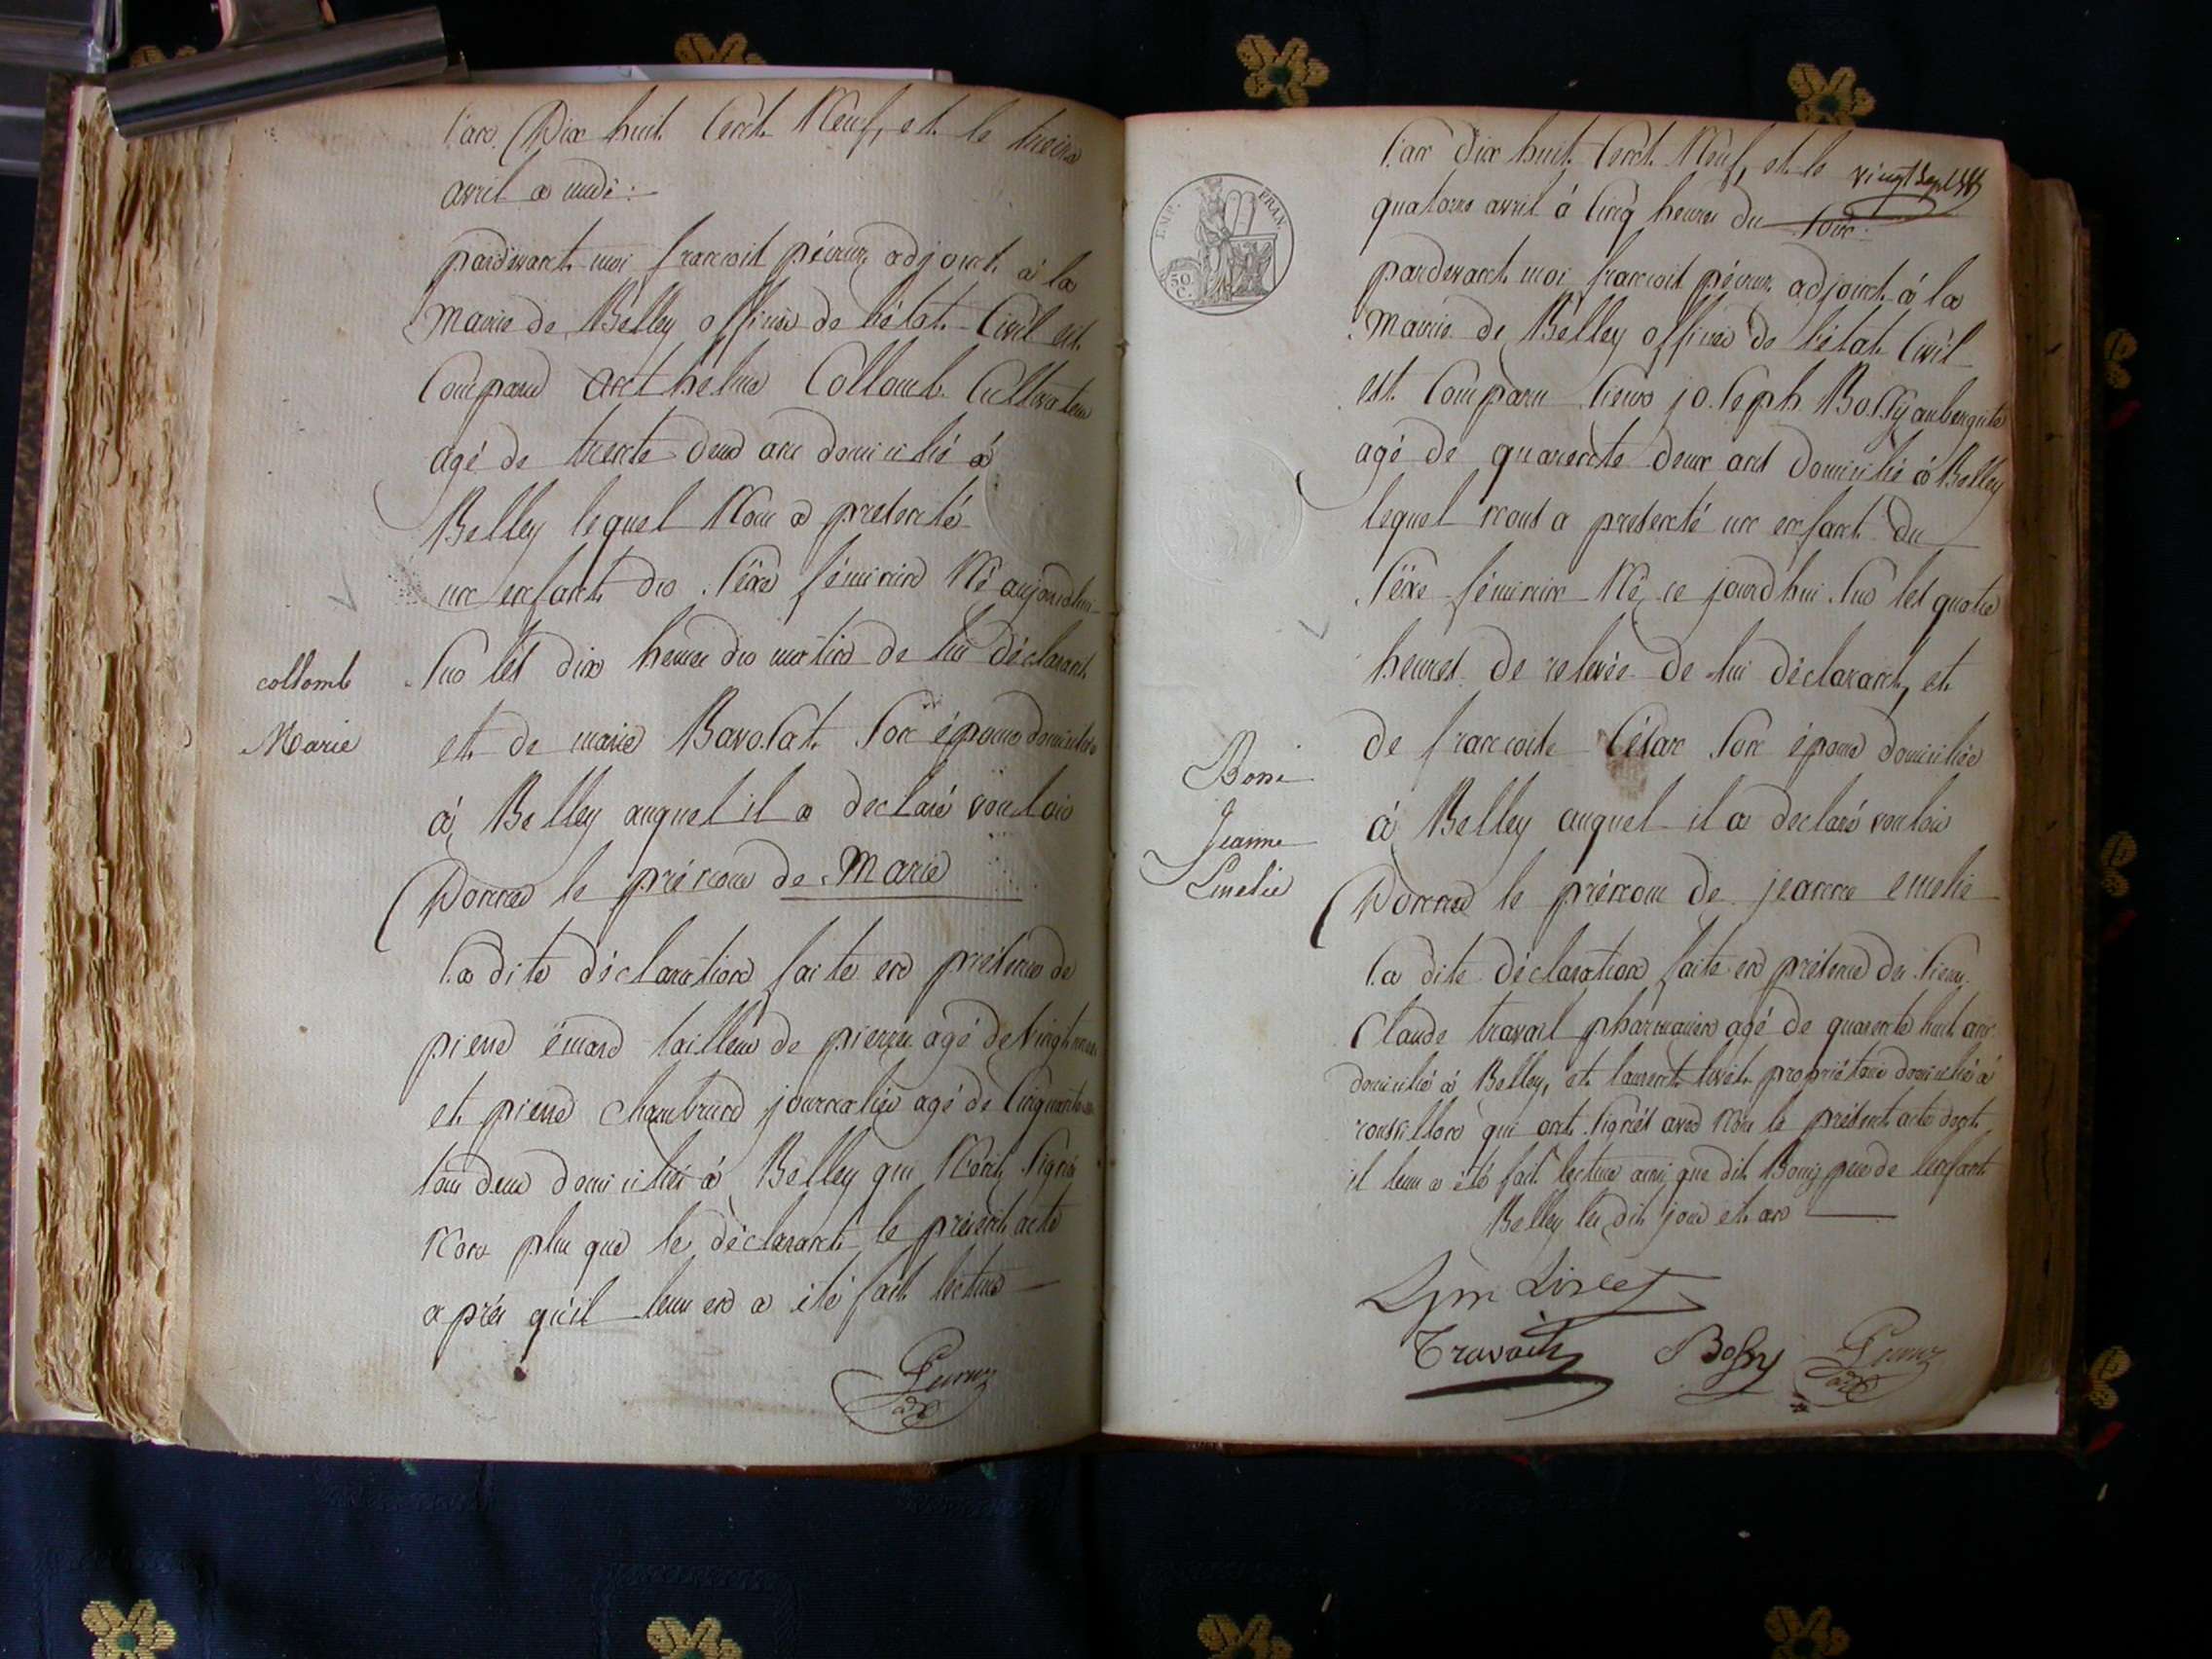 l'an Dix huit Cent Neuf, et le treize
avril a midi :
pardevant moi francois péciux adjoint à la
Mairie de Belley officier de l'état Civil est
Comparu anthelme Collomb Cultivateur
agé de trente deux ans domicilié à
Belley lequel Nous a presenté
un enfant du sexe féminin Né aujourdhui
sur les dix heures du matin de lui déclarant
collomb
Marie
et de marie Bavolat son épouse domiciliée
à Belley auquel il a declaré vouloir
Donner le prénom de Marie
la dite déclaration faite en présence de
pierre émard tailleur de pierre agé de vingt
et pierre chambrard journalier agé de Cinquante
tous deux domiciliés à Belley qui N'ont signé
Non plus que le déclarant le présent acte
après qu'il leur en a été fait lecture
l'an dix huit Cent Neuf, et le
vingt sept
quatorze avril à Cinq heures du soir
IMP. FRAN.
50 C.
pardevant moi francois péciux adjoint à la
Mairie de Belley officier de l'état Civil
est Comparu sieur joseph Bossy aubergiste
agé de quarente deux ans domicilié à Belley
lequel nous a presenté un enfant du
sexe féminin Né ce jourdhui sur les quatre
heures de relevée de lui déclarant, et
de francoise César son épouse domiciliée
Bossi
Jeanne
Emelie
à Belley auquel il a declaré vouloir
Donner le prénom de jeanne emelie
la dite déclaration faite en présence du sieur
Claude travail pharmacien agé de quarente huit ans
domicilié à Belley, et laurent livet propriétaire domicilié à
rousillon qui ont signés avec Nous le présent acte dont
il leur a été fait lecture ainsi que dit Bossy père de l'enfant
Belley les dit jour et an
Livet
Travail Bossy